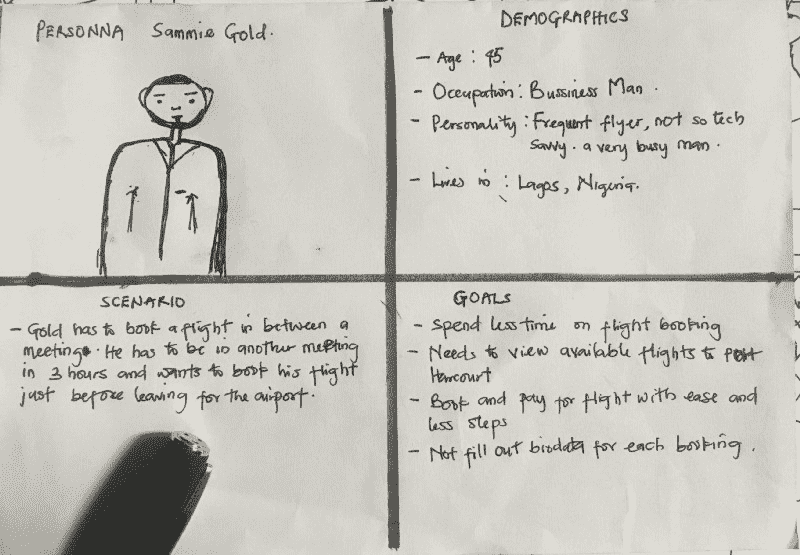 PERSONNA Sammie Gold.
DEMOGRAPHICS
- Age : 45
- Occupation : Bussiness Man .
- Personality : Frequent flyer, not so tech
savvy. a very busy man .
- Lives in : Lagos, Nigeria.
SCENARIO
- Gold has to book a flight in between a
meeting. He has to be in another meeting
in 3 hours and wants to book his flight
just before leaving for the airport.
GOALS
- Spend less time on flight booking
- Needs to view available flights to Port
Harcourt
- Book and pay for flight with ease and
less steps
- Not fill out biodata for each booking .